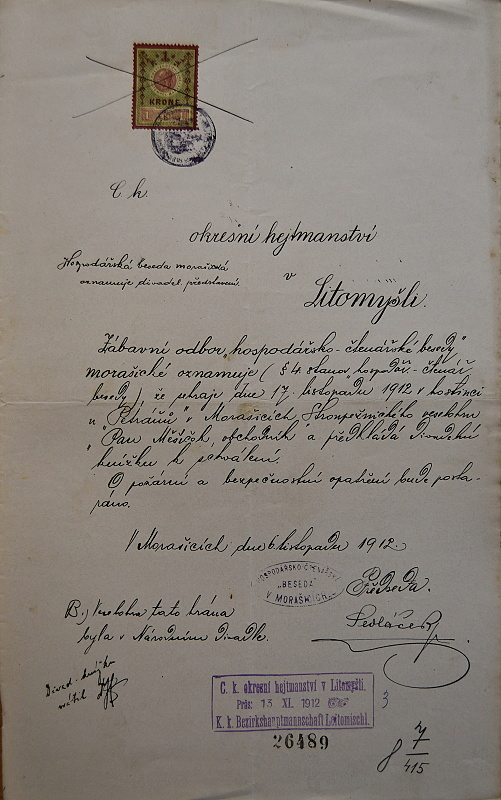 1
KRONE
C. k.
okresní hejtmanství
Hospodářská beseda morašická
oznamuje divadel. představení.
v
Litomyšli.
Zábavní odbor „hospodářsko-čtenářské besedy"
morašické oznamuje (§ 4 stanov hospodář.-čtenář.
besedy), že sehraje dne 17. listopadu 1912 v hostinci
u „Petráňů" v Morašicích Stroupežnického veselohru
"Pan Měsíček, obchodník" a předkládá divadelní
knížku k schválení.
O požární a bezpečnostní opatření bude posta-
ráno.
V Morašicích, dne 6. listopadu 1912.
HOSPODÁŘSKO-ČTENÁŘSKÁ
„BESEDA"
V MORAŠICÍCH
Předseda.
Sedláček
B.) Veselohra tato hrána
byla v Národním Divadle.
Divad. knížku
vrátil
C. k. okresní hejtmanství v Litomyšli.
Präs: 13 XI. 1912
K. k. Bezirkshauptmannschaft Leitomischl.
26489
3
8 7/415